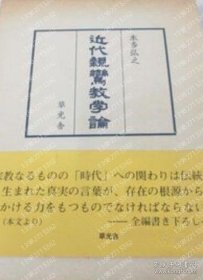 本多弘之
近代親鸞教学論
草光舎
教なるものの「時代」への関わりは伝統
生まれた真実の言葉が、存在の根源から
かける力をもつものでなければならない
（本文より） ——全編書き下ろし
草光舎